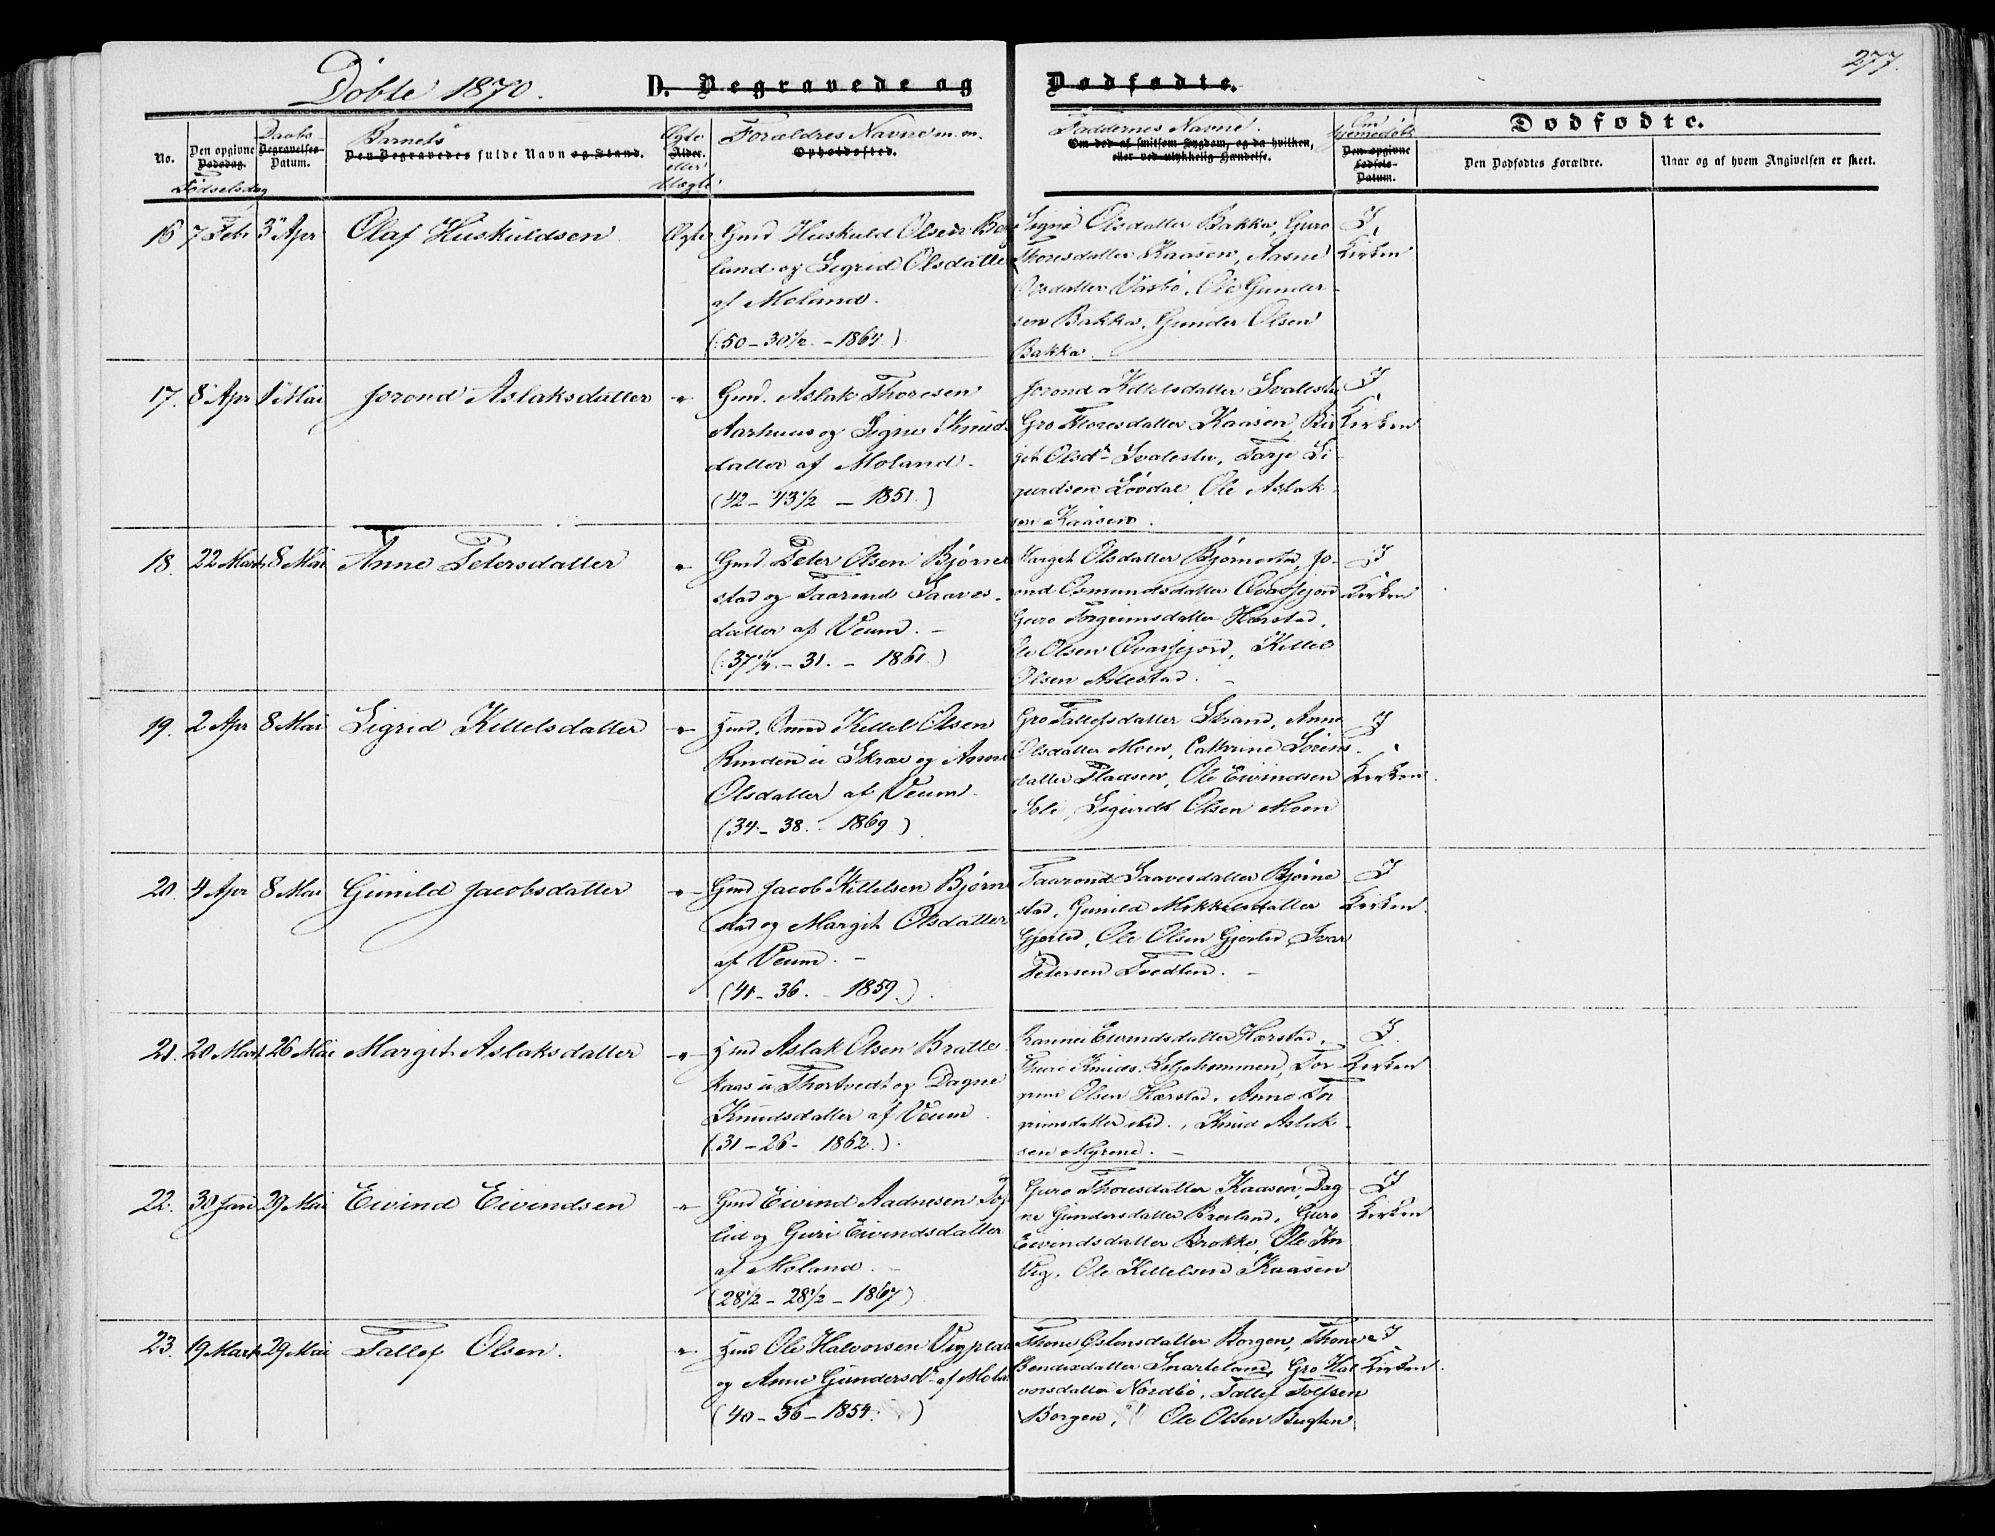 277.
Döbte 1870.
D. Begravede og Dødfødte.
No.
Den opgivne Dødsdag. Födselsdag
Daabs- Begravelses- Datum.
Barnets
Den Begravedes fulde Navn og Stand.
Ægte Alder. eller Uægte
Forældres Navne m. m.
Opholdssted.
Faddernes Navne.
Om død af smitsom Sygdom, og da hvilken,
eller ved ulykkelig Hændelse.
Om Hjemmedöbt
Den opgivne Fødsels-Datum.
Dødfødte.
Den Dødfødtes Forældre.
Naar og af hvem Angivelsen er skeet.
16 7 Febr 3 Apr Olaf Huskuldsen Ægte
Gmd Huskuld Olsen Bei
land og Sigrid Olsdatter
af Moland.
(:50 - 30 1/2. - 1864.)
Signe Olsdatter Bakka, Guro
Thoresdatter Kaasen, Aasne
Olsdatter Väsbö, Ole Gunder-
sen Bakka, Gunder Olsen
Bakka.
I
Kirken
17. 8 Apr 1 Mai Jorond Aslaksdatter -"-
Gmd. Aslak Thoresen
Aarhuus og Signe Knuds
datter af Moland.
(42 - 43 1/2 - 1851.)
Jorond Kittelsdatter Svalestu
Gro Thoresdatter Kaasen, Bir
git Olsdr Svalestu, Tarje Si-
gurdsen Lövdal, Ole Aslak-
sen Kaasen.
I
Kirken
18. 22 Marts 8 Mai Anne Petersdatter "
Gmd. Peter Olsen Bjørne
stad og Taarond Saaves-
datter af Veum. -
(:37 1/4. - 31. - 1861.)
Marget Olsdatter Bjørnestad, Jo-
rond Osmundsdatter Qvasfjord
Guro Torgrimsdatter Hærstad,
Ole Olsen Qvasfjord, Kittel
Olsen Aslestad. -
I
Kirken
19. 2 Apr 8 Mai Sigrid Kittelsdatter -"-
Hmd. Kittel Olsen
Runden u Skræ og Anne
Olsdatter af Veum.
(34. - 38. - 1869)
Gro Tallefsdatter Strand, Anne
Olsdatter Moen, Cathrine Sörens-
datter Pladsen, Ole Eivindsen
Soli, Sigurdt Olsen Moen
I
Kirken.
20. 4 Apr 8 Mai Gunild Jacobsdatter -"-
Gmd Jacob Kittelsen Bjørn
stad og Margit Olsdatter
af Veum. -
(41 - 36. - 1859.)
Taarond Saavesdatter Bjørne
stad, Gunild Mikkelsdatter
Gjerlid, Ole Olsen Gjerlid, Ivar
Petersen Tvedten. -
I
Kirken.
21. 20 Mart 26 Mai Margit Aslaksdatter -"-
Hmd Aslak Olsen Bratte
kaas u Thortvedt og Dagne
Knudsdatter af Veum.
(:31 - 26 - 1862.).
Rannei Eivindsdatter Hærstad,
Thuri Knuds. Stljohommen, Tor
grim Olsen Hærstad, Anne Tor
grimsdatter ibid., Knud Aslak-
sen Myrene. -
I
Kirken
22. 30 Jan 29 Mai Eivind Eivindsen -"-
Gmd Eivind Aadnesen
lid og Guri Eivindsdatter
af Moland. -
(28 1/2 - 28 1/2 - 1867)
Guro Thoresdatter Kaasen, Dag-
ne Gundersdatter Breiland, Guro
Eivindsdatter Brokke, Ole Kn
Vig, Ole Kittelsen Kaasen
I
Kirken
23. 19 Marts 29 Mai Tallef Olsen. "
Hmd Ole Halvorsen Vigplad
og Anne Gundersdr af Mola
(40 - 36 - 1854.)
Thone Östensdatter Borgen, Thone
Bendixdatter Snarteland, Gro Hal
vorsdatter Nordbö, Tallef Tolfsen
Borgen, Ole Olsen Bugten
I
Kirken.